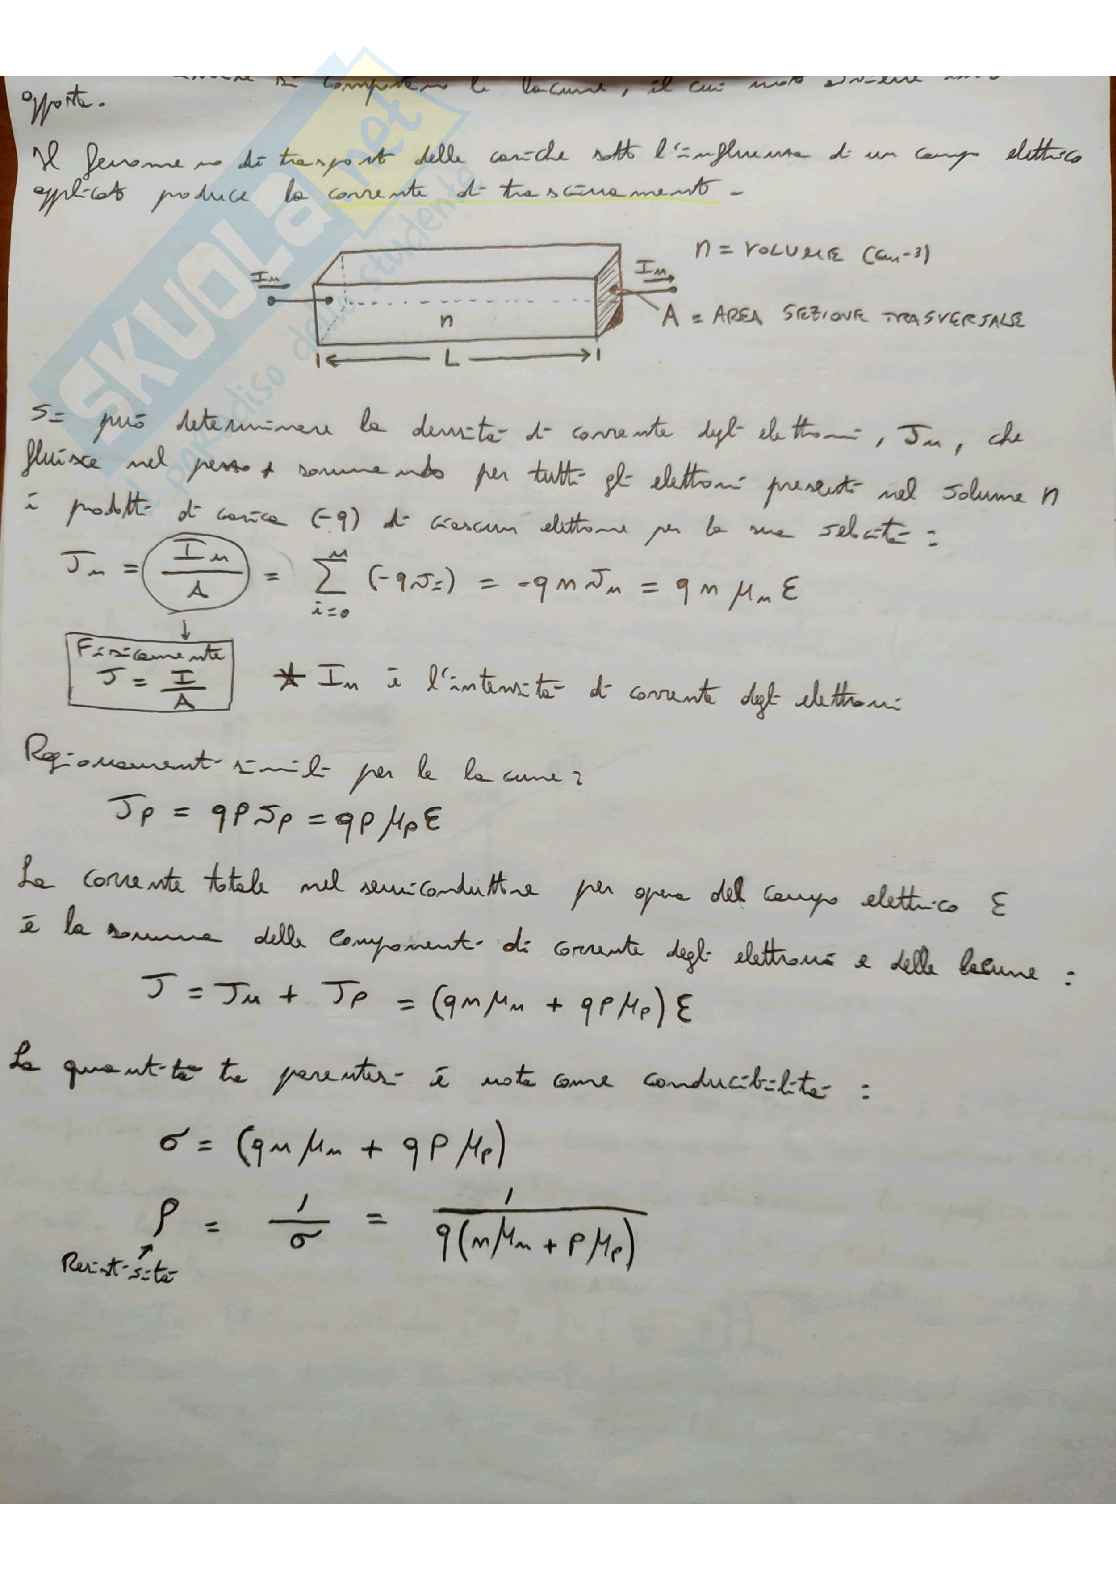 si comportano le lacune, il cui moto avviene
opposta.
Il fenomeno di trasporto delle cariche sotto l'influenza di un campo elettrico
applicato produce la corrente di trascinamento -
n = VOLUME (cm-3)
In
In
A = AREA SEZIONE TRASVERSALE
n
L
Si può determinare la densità di corrente degli elettroni, Jn, che
fluisce nel pezzo sommando per tutti gli elettroni presenti nel volume n
i prodotti di carica (-q) di ciascun elettrone per la sua velocità :
Jn = In/A = Σ i=0 n (-qvi) = -qn vn = q n μn ε
Fisicamente
J = I/A
* In è l'intensità di corrente degli elettroni
Ragionamenti simili per le lacune :
Jp = qp vp = qp μp ε
La corrente totale nel semiconduttore per opera del campo elettrico ε
è la somma delle componenti di corrente degli elettroni e delle lacune :
J = Jn + Jp = (qn μn + qp μp) ε
La quantità tra parentesi è nota come conducibilità :
σ = (qn μn + qp μp)
ρ = 1/σ = 1/q(n μn + p μp)
Resistività
SKUOLA.net
il paradiso dello studente